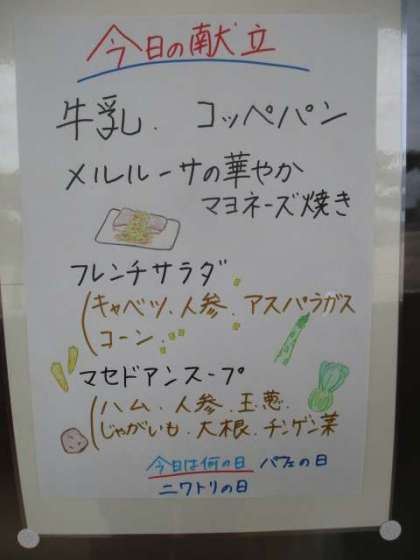 今日の献立
牛乳. コッペパン
メルルーサの華やか
マヨネーズ焼き
フレンチサラダ
(キャベツ.人参.アスパラガス
コーン.
マセドアンスープ
(ハム.人参.玉葱.
じゃがいも.大根.チンゲン菜
今日は何の日 パフェの日
ニワトリの日